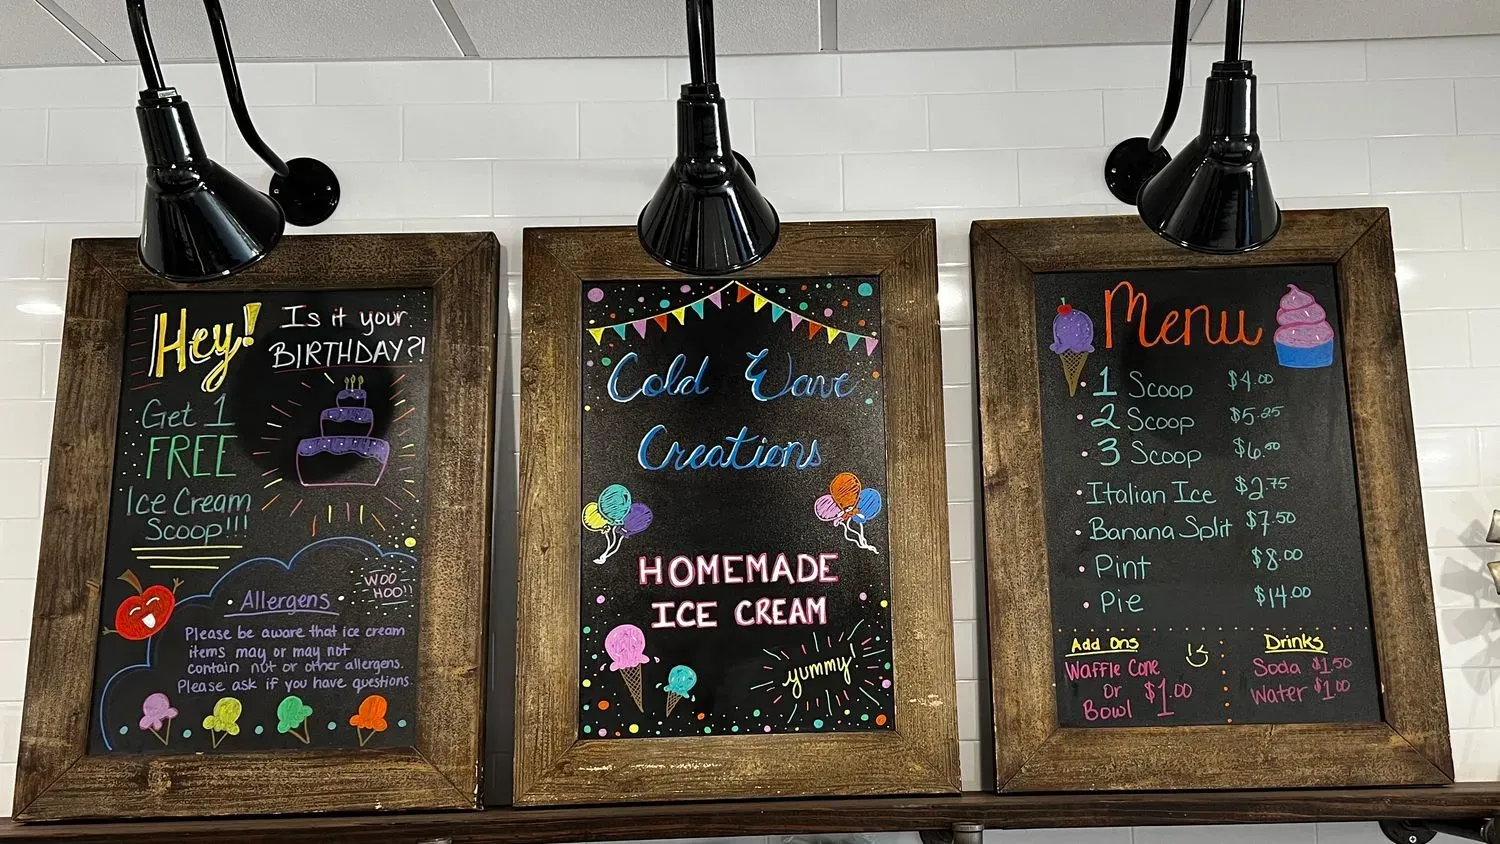 Hey!
Is it your
BIRTHDAY?!
Get 1
FREE
Ice Cream
Scoop!!!
WOO
HOO!!
Allergens
Please be aware that ice cream
items may or may not
contain nut or other allergens.
Please ask if you have questions.
Cold Wave
Creations
HOMEMADE
ICE CREAM
yummy!
Menu
1 Scoop $4.00
2 Scoop $5.25
3 Scoop $6.00
Italian Ice $2.75
Banana Split $7.50
Pint $8.00
Pie $14.00
Add Ons
Waffle Cone
or
Bowl $1.00
Drinks
Soda $1.50
Water $1.00